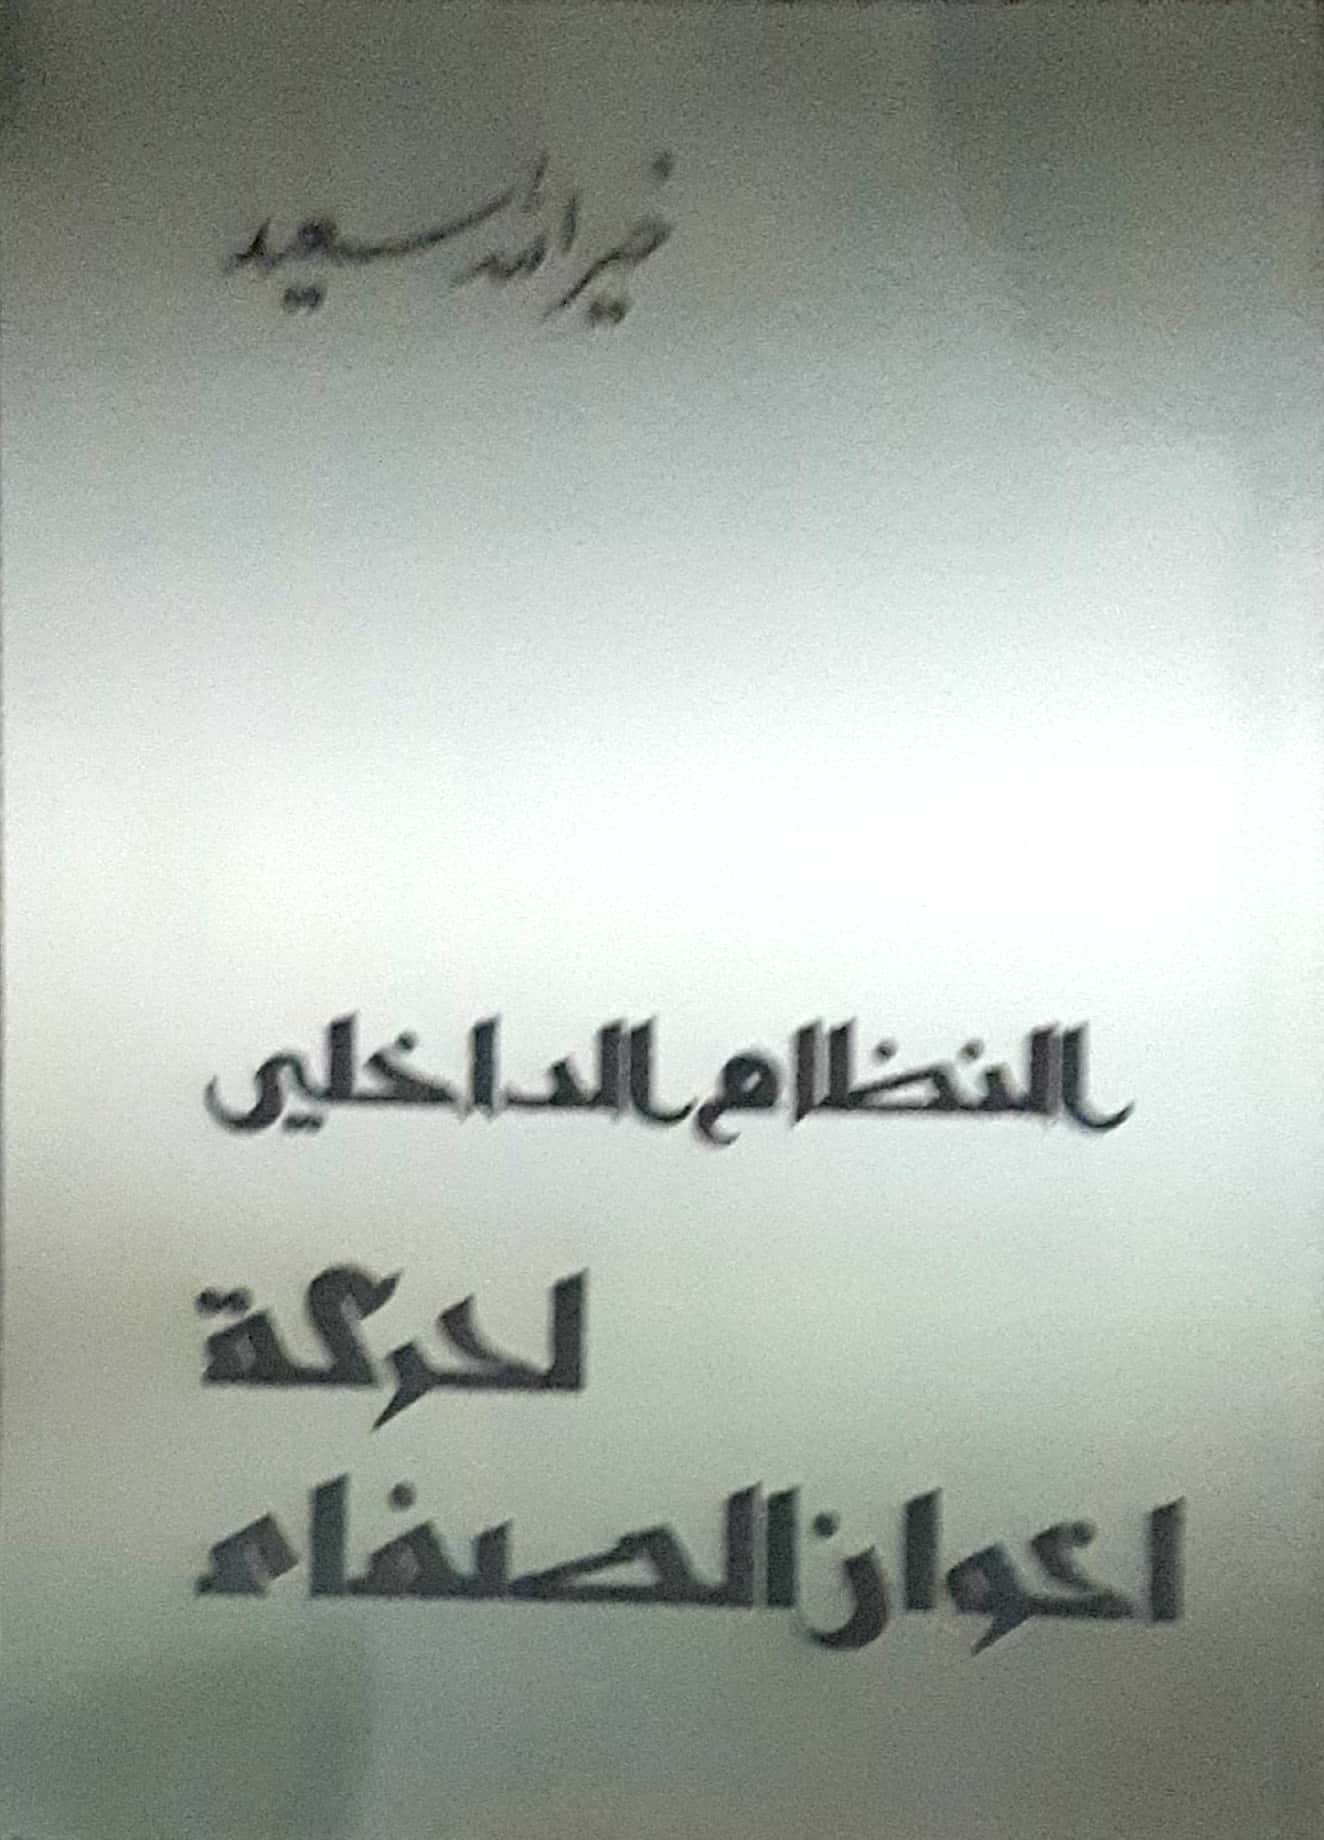 خيرالله سعيد
النظام الداخلي
لحركة
اخوان الصفاء